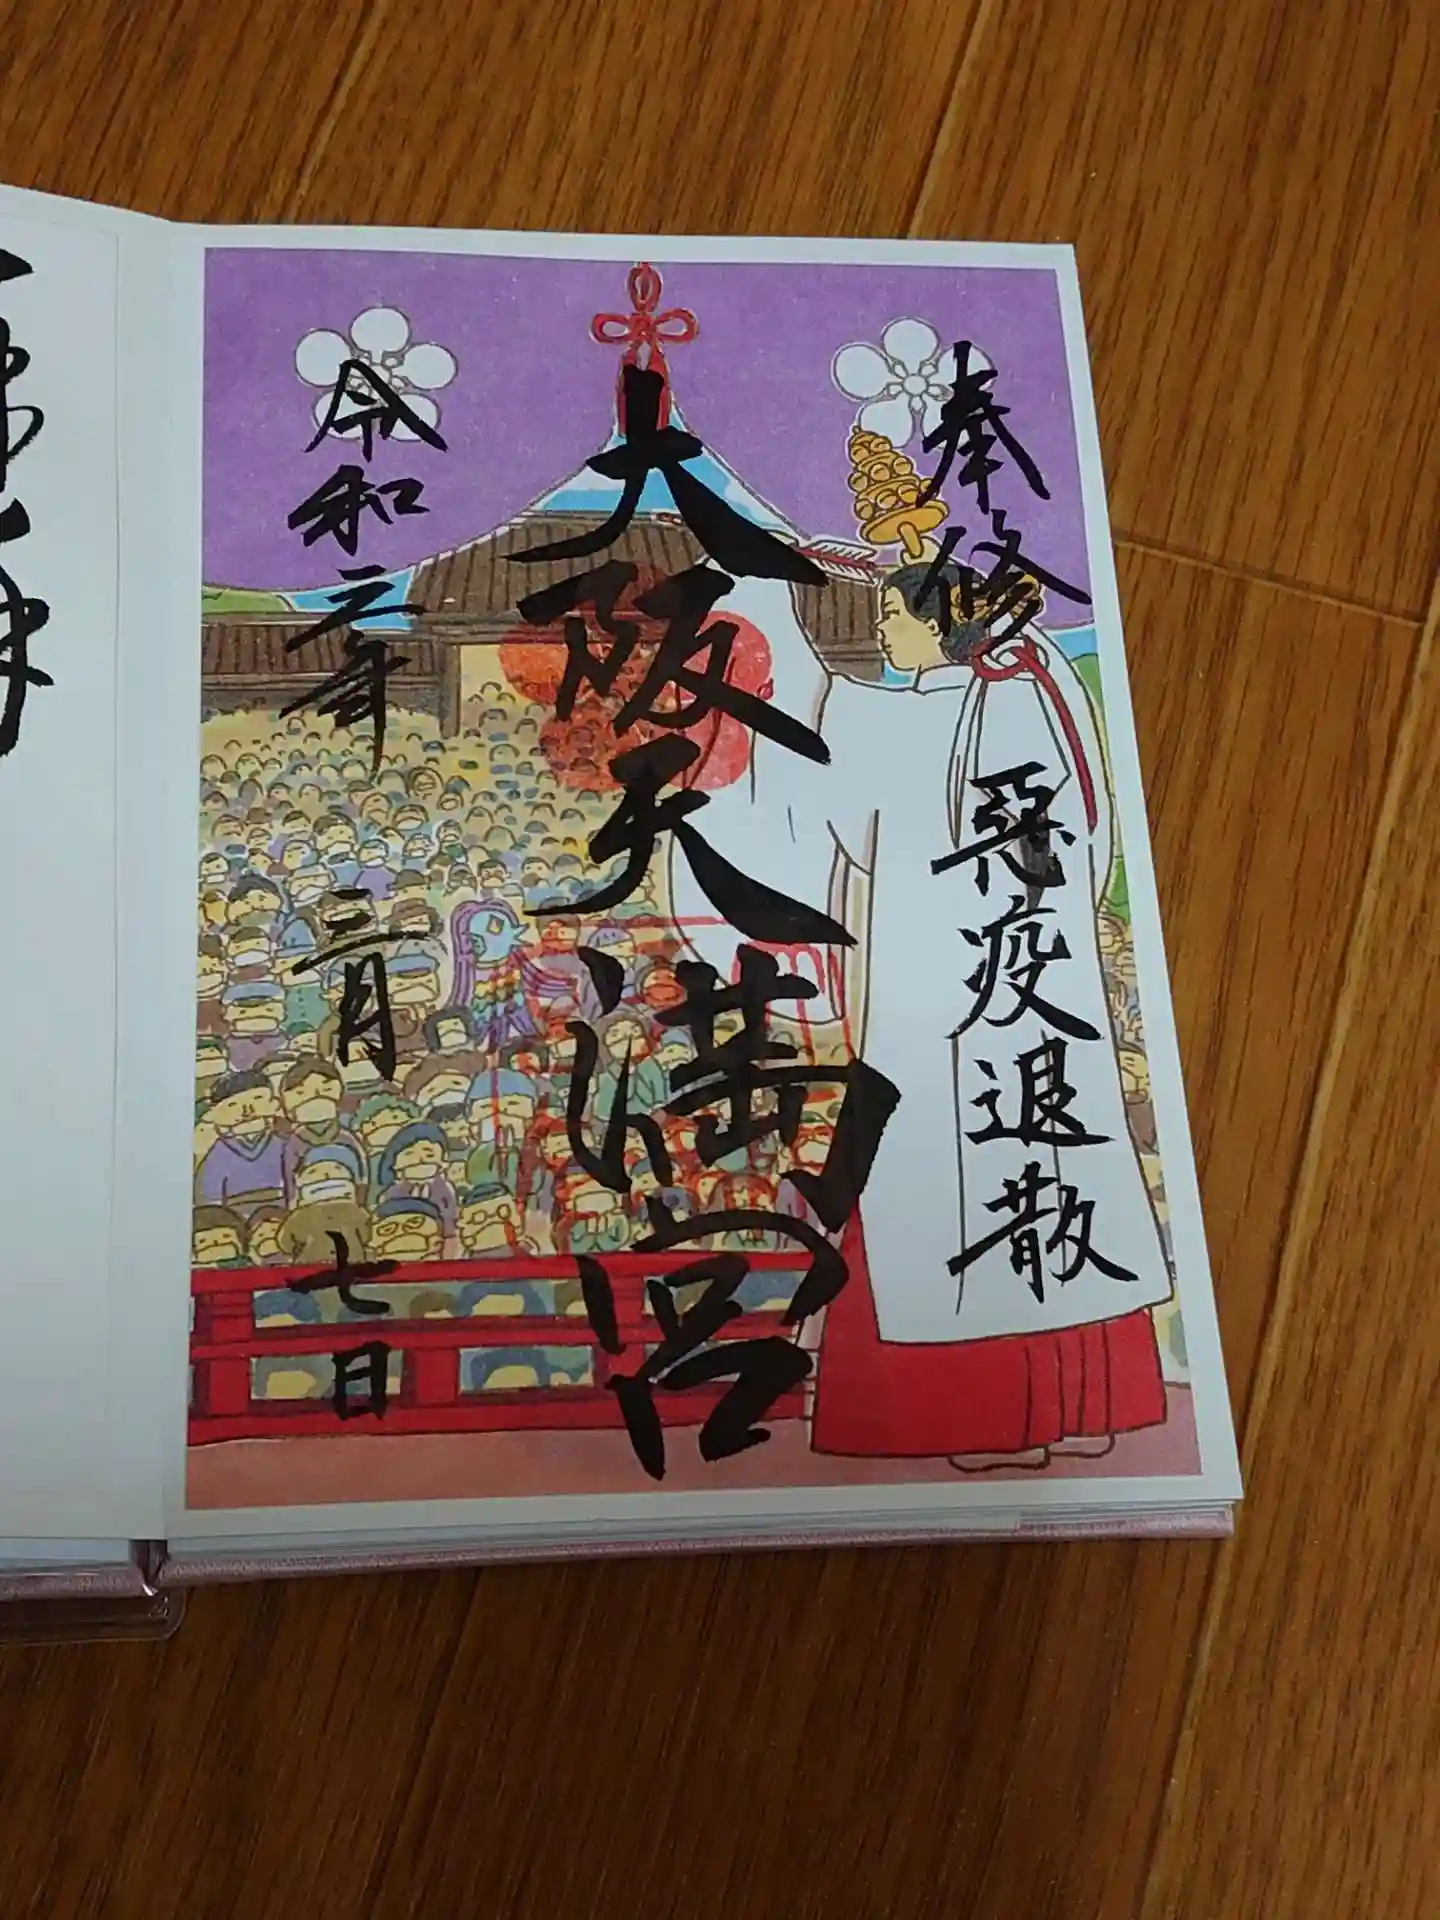 奉修 惡疫退散
大阪天満宮
令和三年 三月 七日